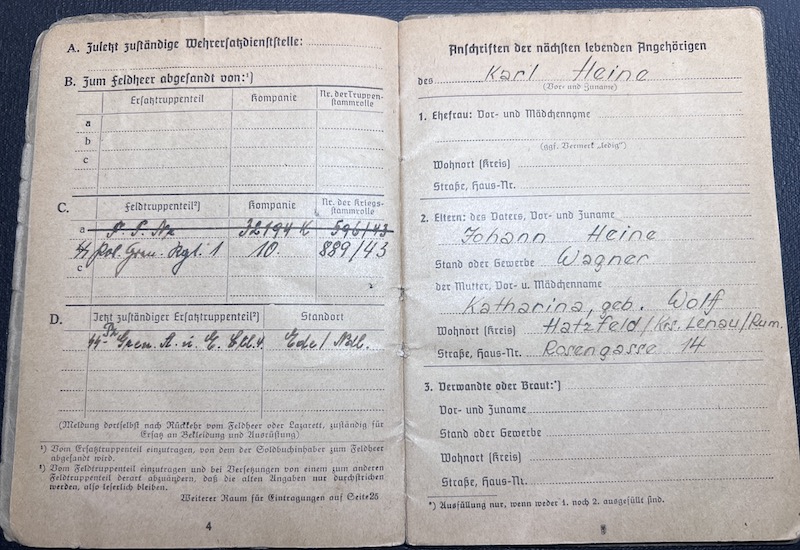 A. Zuletzt zuständige Wehrersatzdienststelle:
B. Zum Feldheer abgesandt von:¹)
Ersatztruppenteil Kompanie Nr. der Truppenstammrolle
a
b
c
C. Feldtruppenteil²) Kompanie Nr. der Kriegsstammrolle
a 32194 K 596/43
Pol. Gren. Rgt. 1 10. 889/43
c
D. Jetzt zuständiger Ersatztruppenteil²) Standort
Pz Gren. A. u. E. Btl. 4. Ede/ Ndl.
(Meldung dortselbst nach Rückkehr vom Feldheer oder Lazarett, zuständig für
Ersatz an Bekleidung und Ausrüstung)
¹) Vom Ersatztruppenteil einzutragen, von dem der Soldbuchinhaber zum Feldheer
abgesandt wird.
²) Vom Feldtruppenteil einzutragen und bei Versetzungen von einem zum anderen
Feldtruppenteil derart abzuändern, daß die alten Angaben nur durchstrichen
werden, also leserlich bleiben.
Weiterer Raum für Eintragungen auf Seite 25
4
Anschriften der nächsten lebenden Angehörigen
des Karl Heine
(Vor- und Zuname)
1. Ehefrau: Vor- und Mädchenname
(ggf. Vermerk „ledig")
Wohnort (Kreis)
Straße, Haus-Nr.
2. Eltern: des Vaters, Vor- und Zuname
Johann Heine
Stand oder Gewerbe Wagner
der Mutter, Vor- u. Mädchenname
Katharina, geb. Wolf
Wohnort (Kreis) Hatzfeld/Krs. Lenau/Rum.
Straße, Haus-Nr. Rosengasse 14
3. Verwandte oder Braut:*)
Vor- und Zuname
Stand oder Gewerbe
Wohnort (Kreis)
Straße, Haus-Nr.
*) Ausfüllung nur, wenn weder 1. noch 2. ausgefüllt sind.